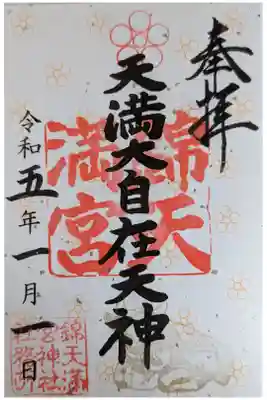 奉拝
天満大自在天神
錦天
満宮
令和五年一月一日
錦天満
宮神社
社務所